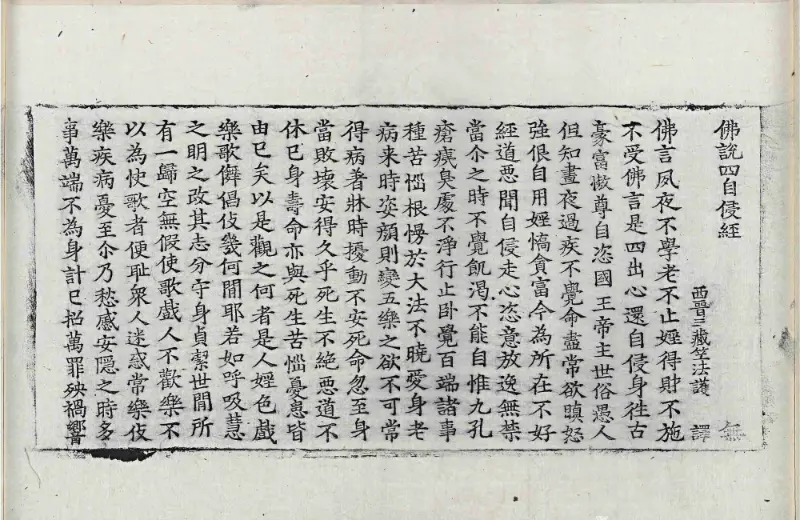 佛說四自侵經 無
西晉三藏竺法護 譯
佛言夙夜不學老不止婬得財不施
不受佛言是四出心還自侵身徃古
豪富憿尊自恣國王帝主世俗愚人
但知晝夜過疾不覺命盡常欲瞋怒
強佷自用婬憍貪富今為所在不好
經道惡聞自侵走心恣意放逸無禁
當尒之時不覺飢渴不能自惟九孔
瘡痍臭處不淨行止卧覺百端諸事
種苦惱根愣於大法不曉愛身老
病来時姿顔則變五樂之欲不可常
得病著牀時擾動不安死命忽至身
當敗壞安得久乎死生不絕惡道不
休已身壽命亦與死生苦惱憂患皆
由已矣以是觀之何者是人婬色戲
樂歌儛倡伎幾何閒耶若如呼吸慧
之明之改其志分守身貞潔世閒所
有一歸空無假使歌戲人不歡樂不
以為快歌者便耻衆人迷惑常樂伎
樂疾病憂至尒乃愁慼安隱之時多
事萬端不為身計已招萬罪殃禍響